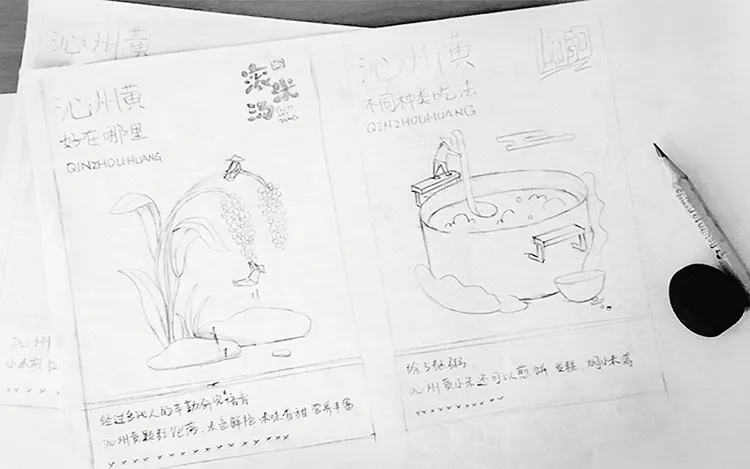 沁州黄
沁州黄
好在哪里
QINZHOUHUANG
滚米汤
GUN MI TANG
经过多代人的辛勤研究培育
沁州黄颗粒饱满、米色鲜艳、味香甜营养丰富
xxxxxxxxxxxxxxx
沁州
沁州黄
不同种类吃法
QINZHOUHUANG
LOGO
除了熬粥
沁州黄小米还可以煎饼 发糕 焖小米等
xxxxxxxxx